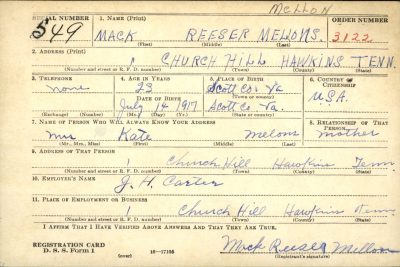 MELLON
SERIAL NUMBER 1. NAME (Print) ORDER NUMBER
549 MACK REESER MELLONS. 3122
(First) (Middle) (Last)
2. ADDRESS (Print)
1 CHURCH HILL HAWKINS TENN.
(Number and street or R. F. D. number) (Town) (County) (State)
3. TELEPHONE 4. AGE IN YEARS 5. PLACE OF BIRTH 6. COUNTRY OF CITIZENSHIP
none 23 Scott Co. Va U.S.A.
DATE OF BIRTH (Town or county)
July 14 1917 Scott Co. Va.
(Exchange) (Number) (Mo.) (Day) (Yr.) (State or country)
7. NAME OF PERSON WHO WILL ALWAYS KNOW YOUR ADDRESS 8. RELATIONSHIP OF THAT PERSON
Mrs Kate Melons mother
(Mr., Mrs., Miss) (First) (Middle) (Last)
9. ADDRESS OF THAT PERSON
1 Church Hill Hawkins Tenn.
(Number and street or R. F. D. number) (Town) (County) (State)
10. EMPLOYER'S NAME
J. H. Carter
11. PLACE OF EMPLOYMENT OR BUSINESS
1 Church Hill Hawkins Tenn.
(Number and street or R. F. D. number) (Town) (County) (State)
I AFFIRM THAT I HAVE VERIFIED ABOVE ANSWERS AND THAT THEY ARE TRUE.
REGISTRATION CARD
D. S. S. Form 1 (over) 16-17105 Mack Reeser Mellon
(Registrant's signature)